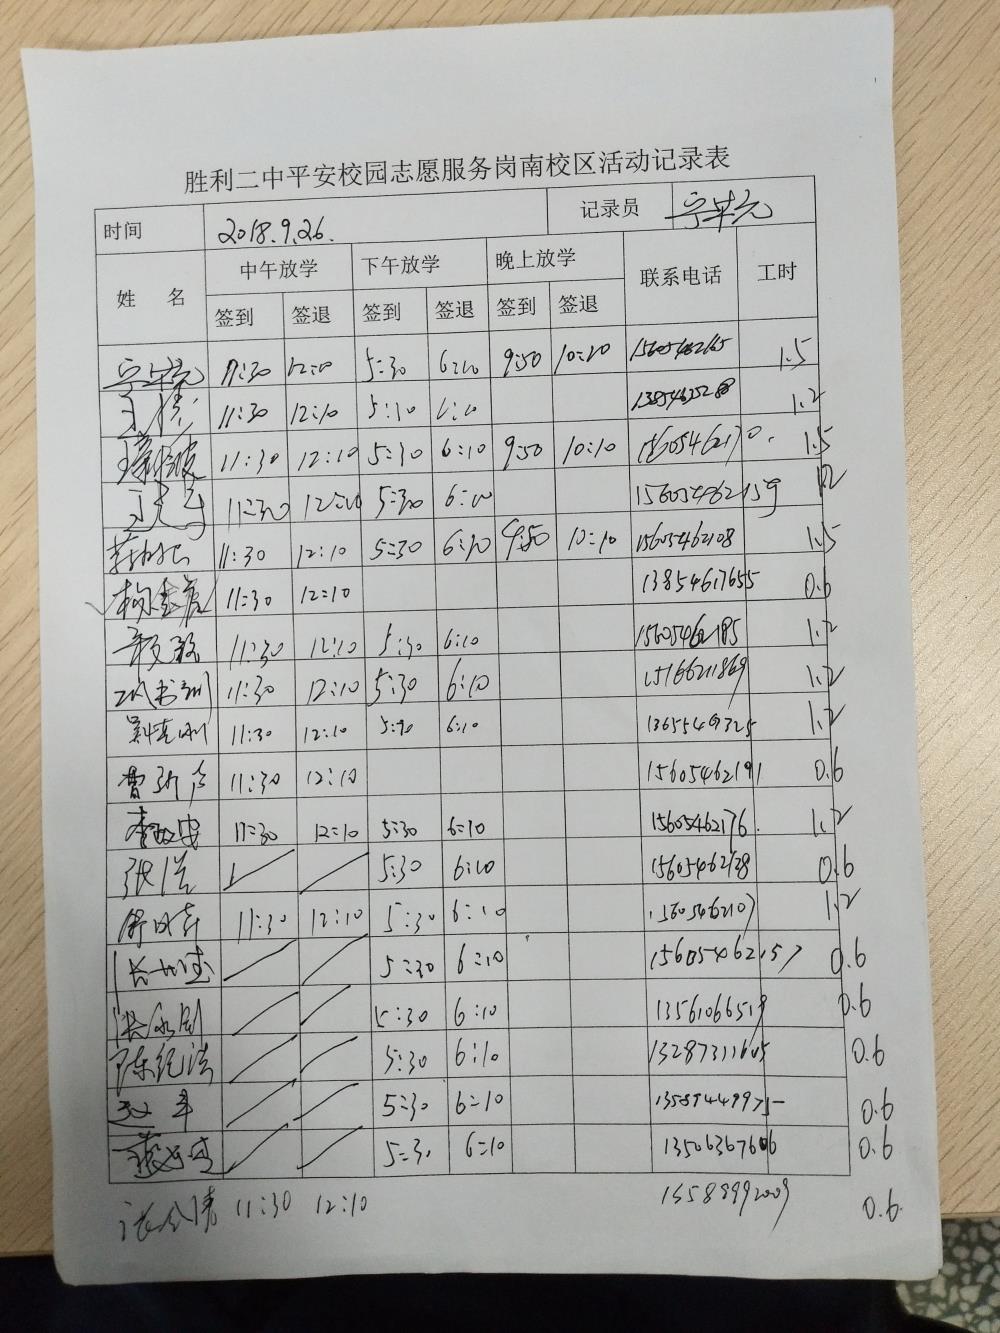 胜利二中平安校园志愿服务岗南校区活动记录表
时间 2018.9.26. 记录员
姓 名 中午放学 下午放学 晚上放学 联系电话 工时
签到 签退 签到 签退 签到 签退
11:30 12:10 5:30 6:10 9:50 10:10 15605462165 1.5
11:30 12:10 5:10 6:10 1.2
11:30 12:10 5:30 6:10 9:50 10:10 15605462170. 1.5
11:30 12:10 5:30 6:10 15605462159 1.2
11:30 12:10 5:30 6:10 9:50 10:10 15605462108 1.5
11:30 12:10 13854617655 0.6
11:30 12:10 5:30 6:10 15605462185 1.2
11:30 12:10 5:30 6:10 1516621869 1.2
11:30 12:10 6:10 1.2
11:30 12:10 15605462191 0.6
李 11:30 12:10 5:30 6:10 15605462176. 1.2
张浩 5:30 6:10 15605462128 0.6
11:30 12:10 5:30 6:10 15605462107 1.2
张 5:30 6:10 15605462157 0.6
张永刚 5:30 6:10 13561066519 0.6
陈纪浩 5:30 6:10 13287311605 0.6
赵军 5:30 6:10 13589449975 0.6
5:30 6:10 13506367606 0.6
11:30 12:10 13589992009 0.6